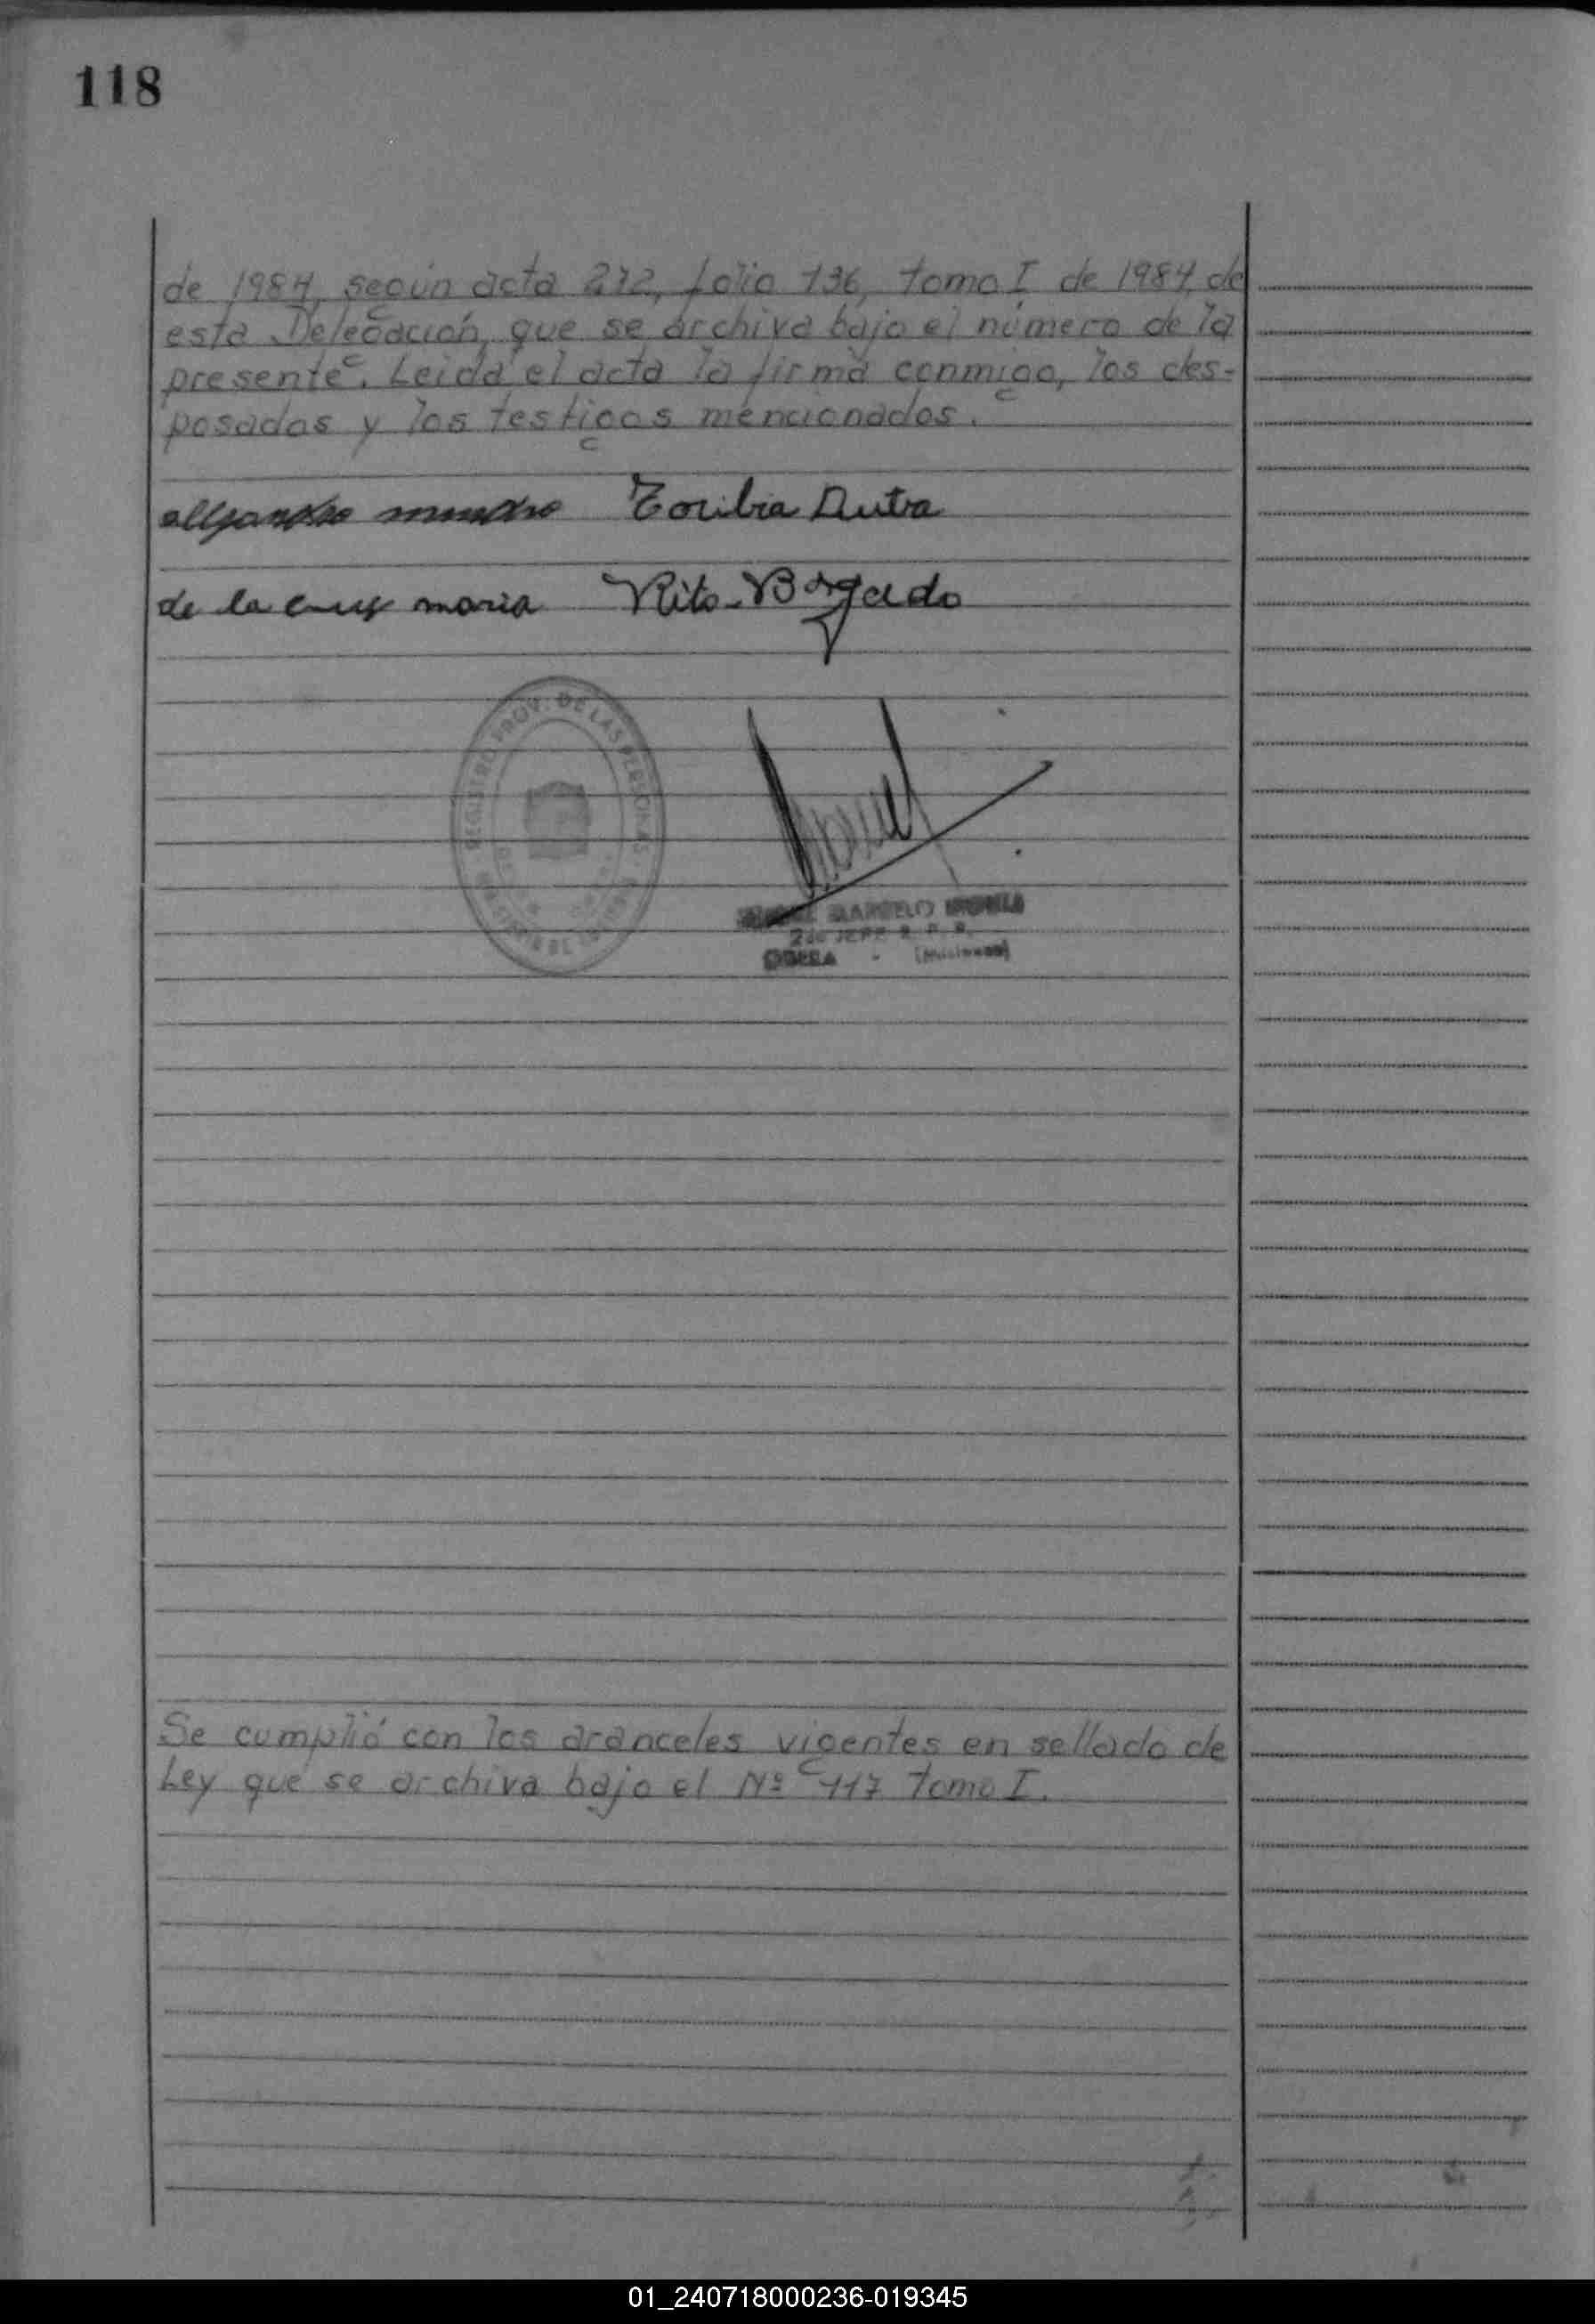 118
de 1984, según acta 272, folio 136, tomo I de 1984 de
esta Delegación, que se archiva bajo el número de la
presente. Leida el acta la firma conmigo, los des-
posados y los testigos mencionados.
Toribia Dutra
de la cruz maria Rito Bogado
REGISTRO PROV. DE LAS PERSONAS
2do JEFE R. P. P.
OBERA - (Misiones)
Se cumplió con los aranceles vigentes en sellado de
Ley que se archiva bajo el Nº 117 tomo I.
01_240718000236-019345